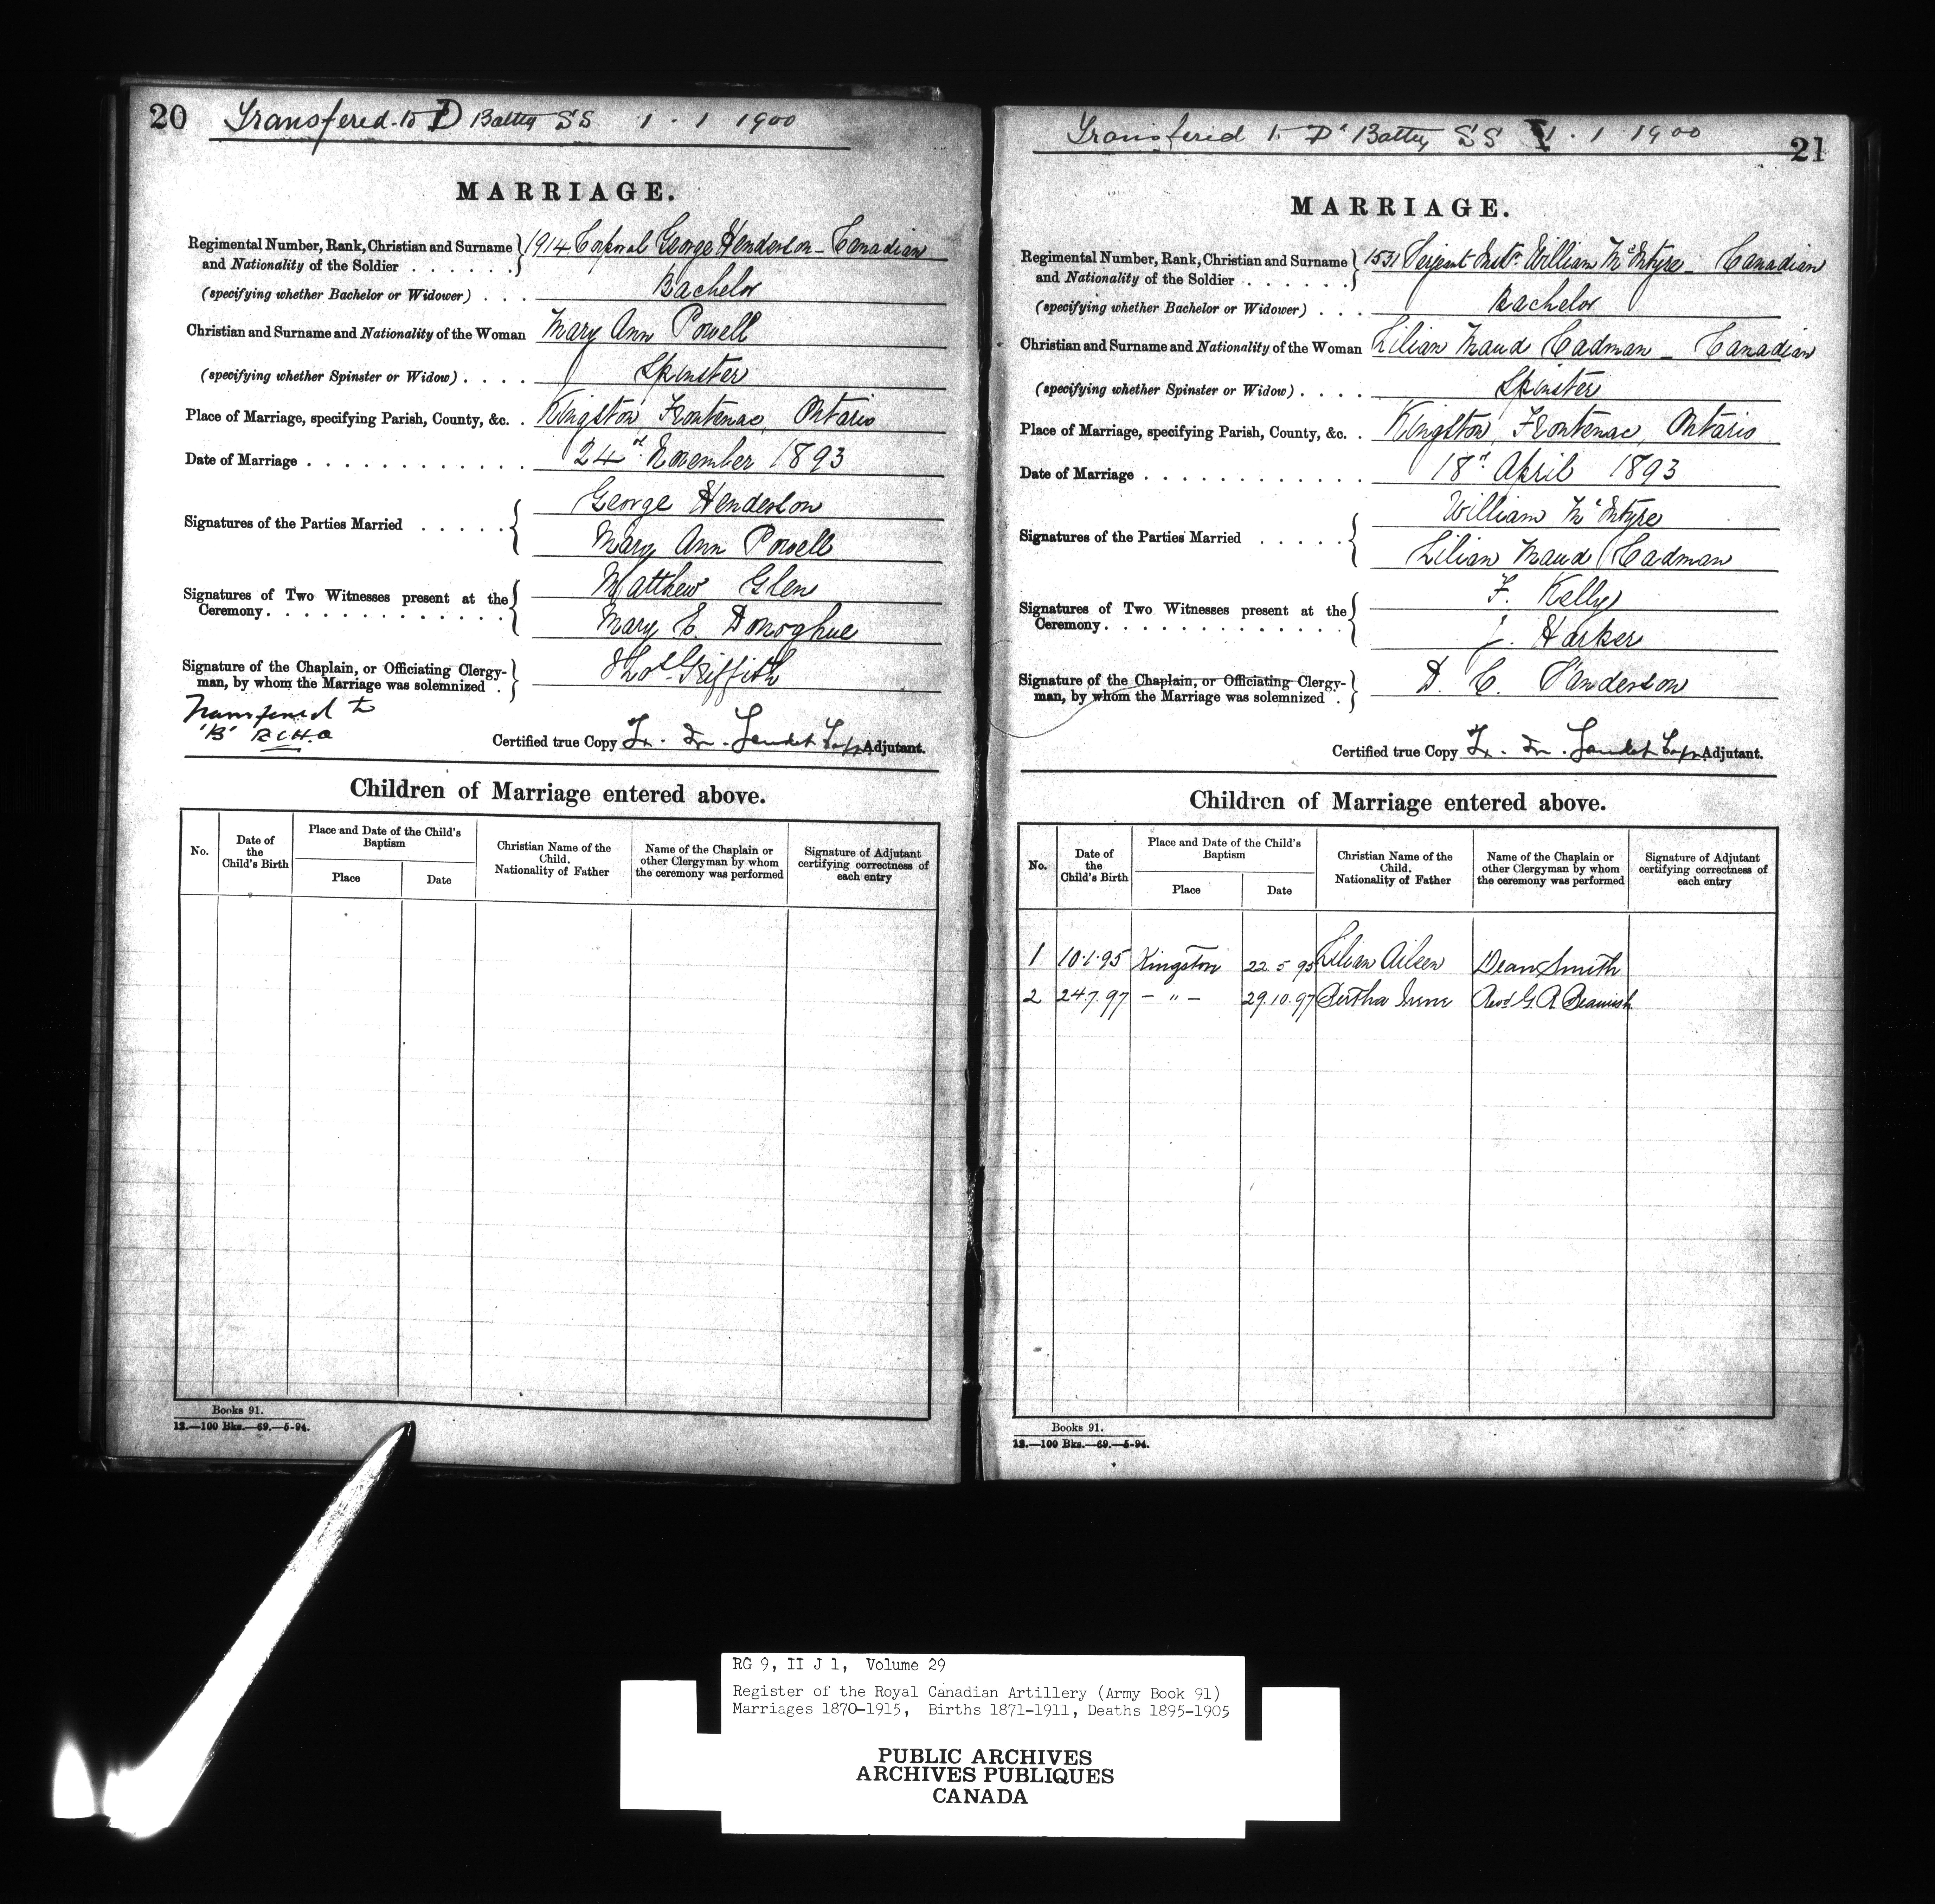 20 Transfered to D Battey SS 1 . 1 1900
MARRIAGE.
Regimental Number, Rank, Christian and Surname and Nationality of the Soldier . . . . . . 1914 Corporal George Henderson – Canadian
(specifying whether Bachelor or Widower) . . . Bachelor
Christian and Surname and Nationality of the Woman Mary Ann Powell
(specifying whether Spinster or Widow) . . . . Spinster
Place of Marriage, specifying Parish, County, &c. . Kingston, Frontenac, Ontario
Date of Marriage . . . . . . . . . . . . 24th November 1893
Signatures of the Parties Married . . . . . George Henderson
Mary Ann Powell
Signatures of Two Witnesses present at the Ceremony. . . . . . . . . . . . . Matthew Glen
Mary E. Donoghue
Signature of the Chaplain, or Officiating Clergy-
man, by whom the Marriage was solemnized . Thos Griffith
Transfered to
'B' RCHA
Certified true Copy Adjutant.
Children of Marriage entered above.
No.
Date of the Child's Birth
Place and Date of the Child's Baptism
Place
Date
Christian Name of the Child. Nationality of Father
Name of the Chaplain or other Clergyman by whom the ceremony was performed
Signature of Adjutant certifying correctness of each entry
Books 91.
12.—100 Bks.—69.—5-94.
Transfered to 'D' Battey SS 1 . 1 1900
21
MARRIAGE.
Regimental Number, Rank, Christian and Surname and Nationality of the Soldier . . . . . . 1531 Serjeant Instr William McIntyre – Canadian
(specifying whether Bachelor or Widower) . . . Bachelor
Christian and Surname and Nationality of the Woman Lilian Maud Cadman – Canadian
(specifying whether Spinster or Widow) . . . . Spinster
Place of Marriage, specifying Parish, County, &c. . Kingston, Frontenac, Ontario
Date of Marriage . . . . . . . . . . . . 18th April 1893
Signatures of the Parties Married . . . . . William McIntyre
Lilian Maud Cadman
Signatures of Two Witnesses present at the Ceremony. . . . . . . . . . . . . F. Kelly
J. Harker
Signature of the Chaplain, or Officiating Clergy-
man, by whom the Marriage was solemnized . D. C. Sanderson
Certified true Copy Adjutant.
Children of Marriage entered above.
No.
Date of the Child's Birth
Place and Date of the Child's Baptism
Place
Date
Christian Name of the Child. Nationality of Father
Name of the Chaplain or other Clergyman by whom the ceremony was performed
Signature of Adjutant certifying correctness of each entry
1 10.1.95 Kingston 22.5.95 Lilian Aileen Dean Smith
2 24.7.97 – " – 29.10.97 Bertha Irene Revd G. R. Beamish
Books 91.
12.—100 Bks.—69.—5-94.
RG 9, II J 1, Volume 29
Register of the Royal Canadian Artillery (Army Book 91)
Marriages 1870-1915, Births 1871-1911, Deaths 1895-1905
PUBLIC ARCHIVES
ARCHIVES PUBLIQUES
CANADA